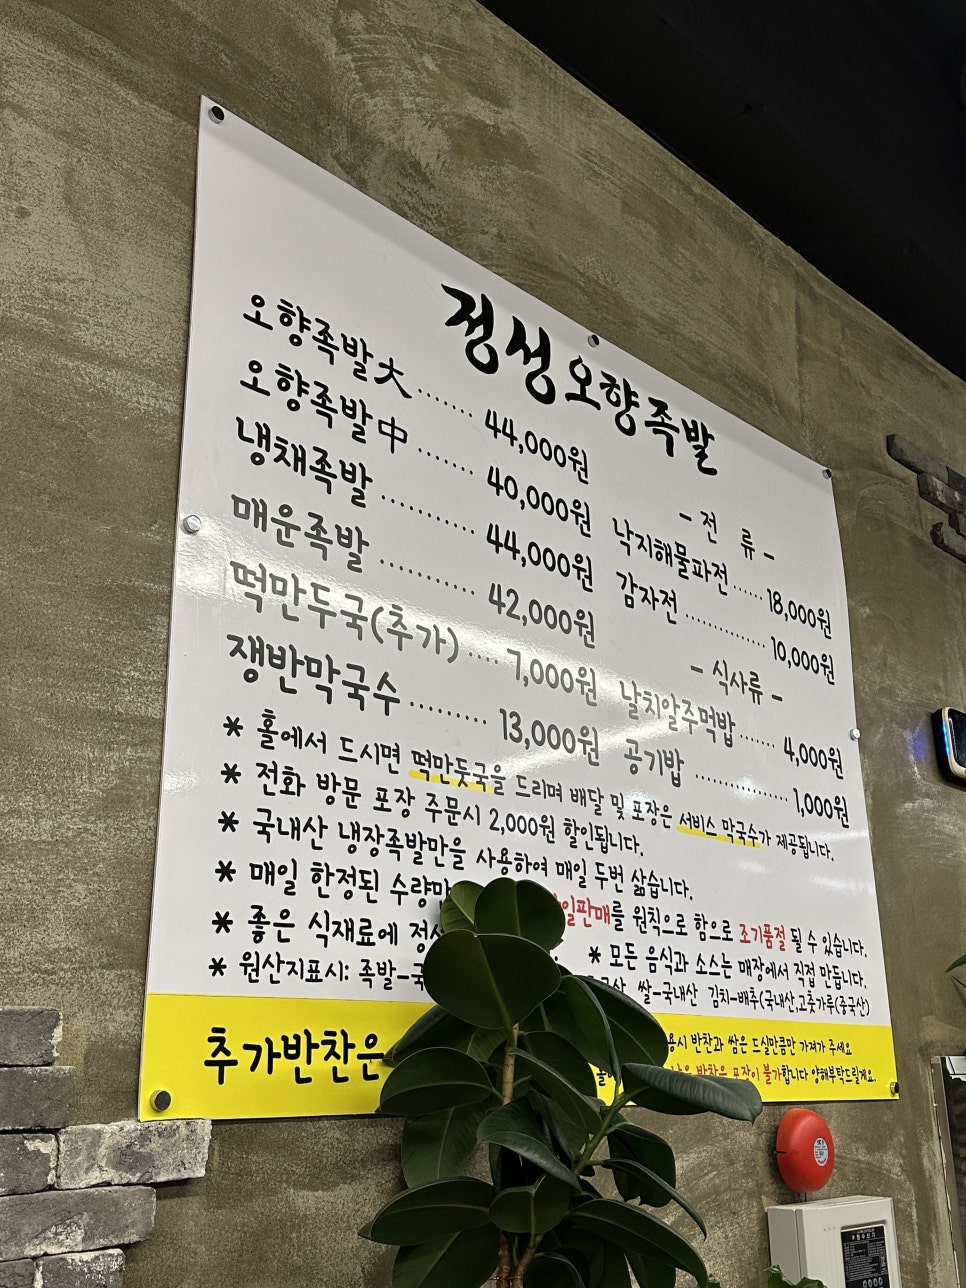 정성오향족발
오향족발大 ······· 44,000원
오향족발中 ······· 40,000원
냉채족발 ··········· 44,000원
매운족발 ··········· 42,000원
떡만두국(추가) ···· 7,000원
쟁반막국수 ········· 13,000원
- 전 류 -
낙지해물파전 ······ 18,000원
감자전 ··············· 10,000원
- 식사류 -
날치알주먹밥 ······· 4,000원
공기밥 ··············· 1,000원
* 홀에서 드시면 떡만둣국을 드리며 배달 및 포장은 서비스 막국수가 제공됩니다.
* 전화 방문 포장 주문시 2,000원 할인됩니다.
* 국내산 냉장족발만을 사용하여 매일 두번 삶습니다.
* 매일 한정된 수량만 판매를 원칙으로 함으로 조기품절 될 수 있습니다.
* 좋은 식재료에 * 모든 음식과 소스는 매장에서 직접 만듭니다.
* 원산지표시: 족발- 쌀-국내산 김치-배추(국내산,고춧가루(중국산)
추가반찬은
반찬과 쌈은 드실만큼만 가져가 주세요
포장이 불가합니다 양해부탁드릴게요.